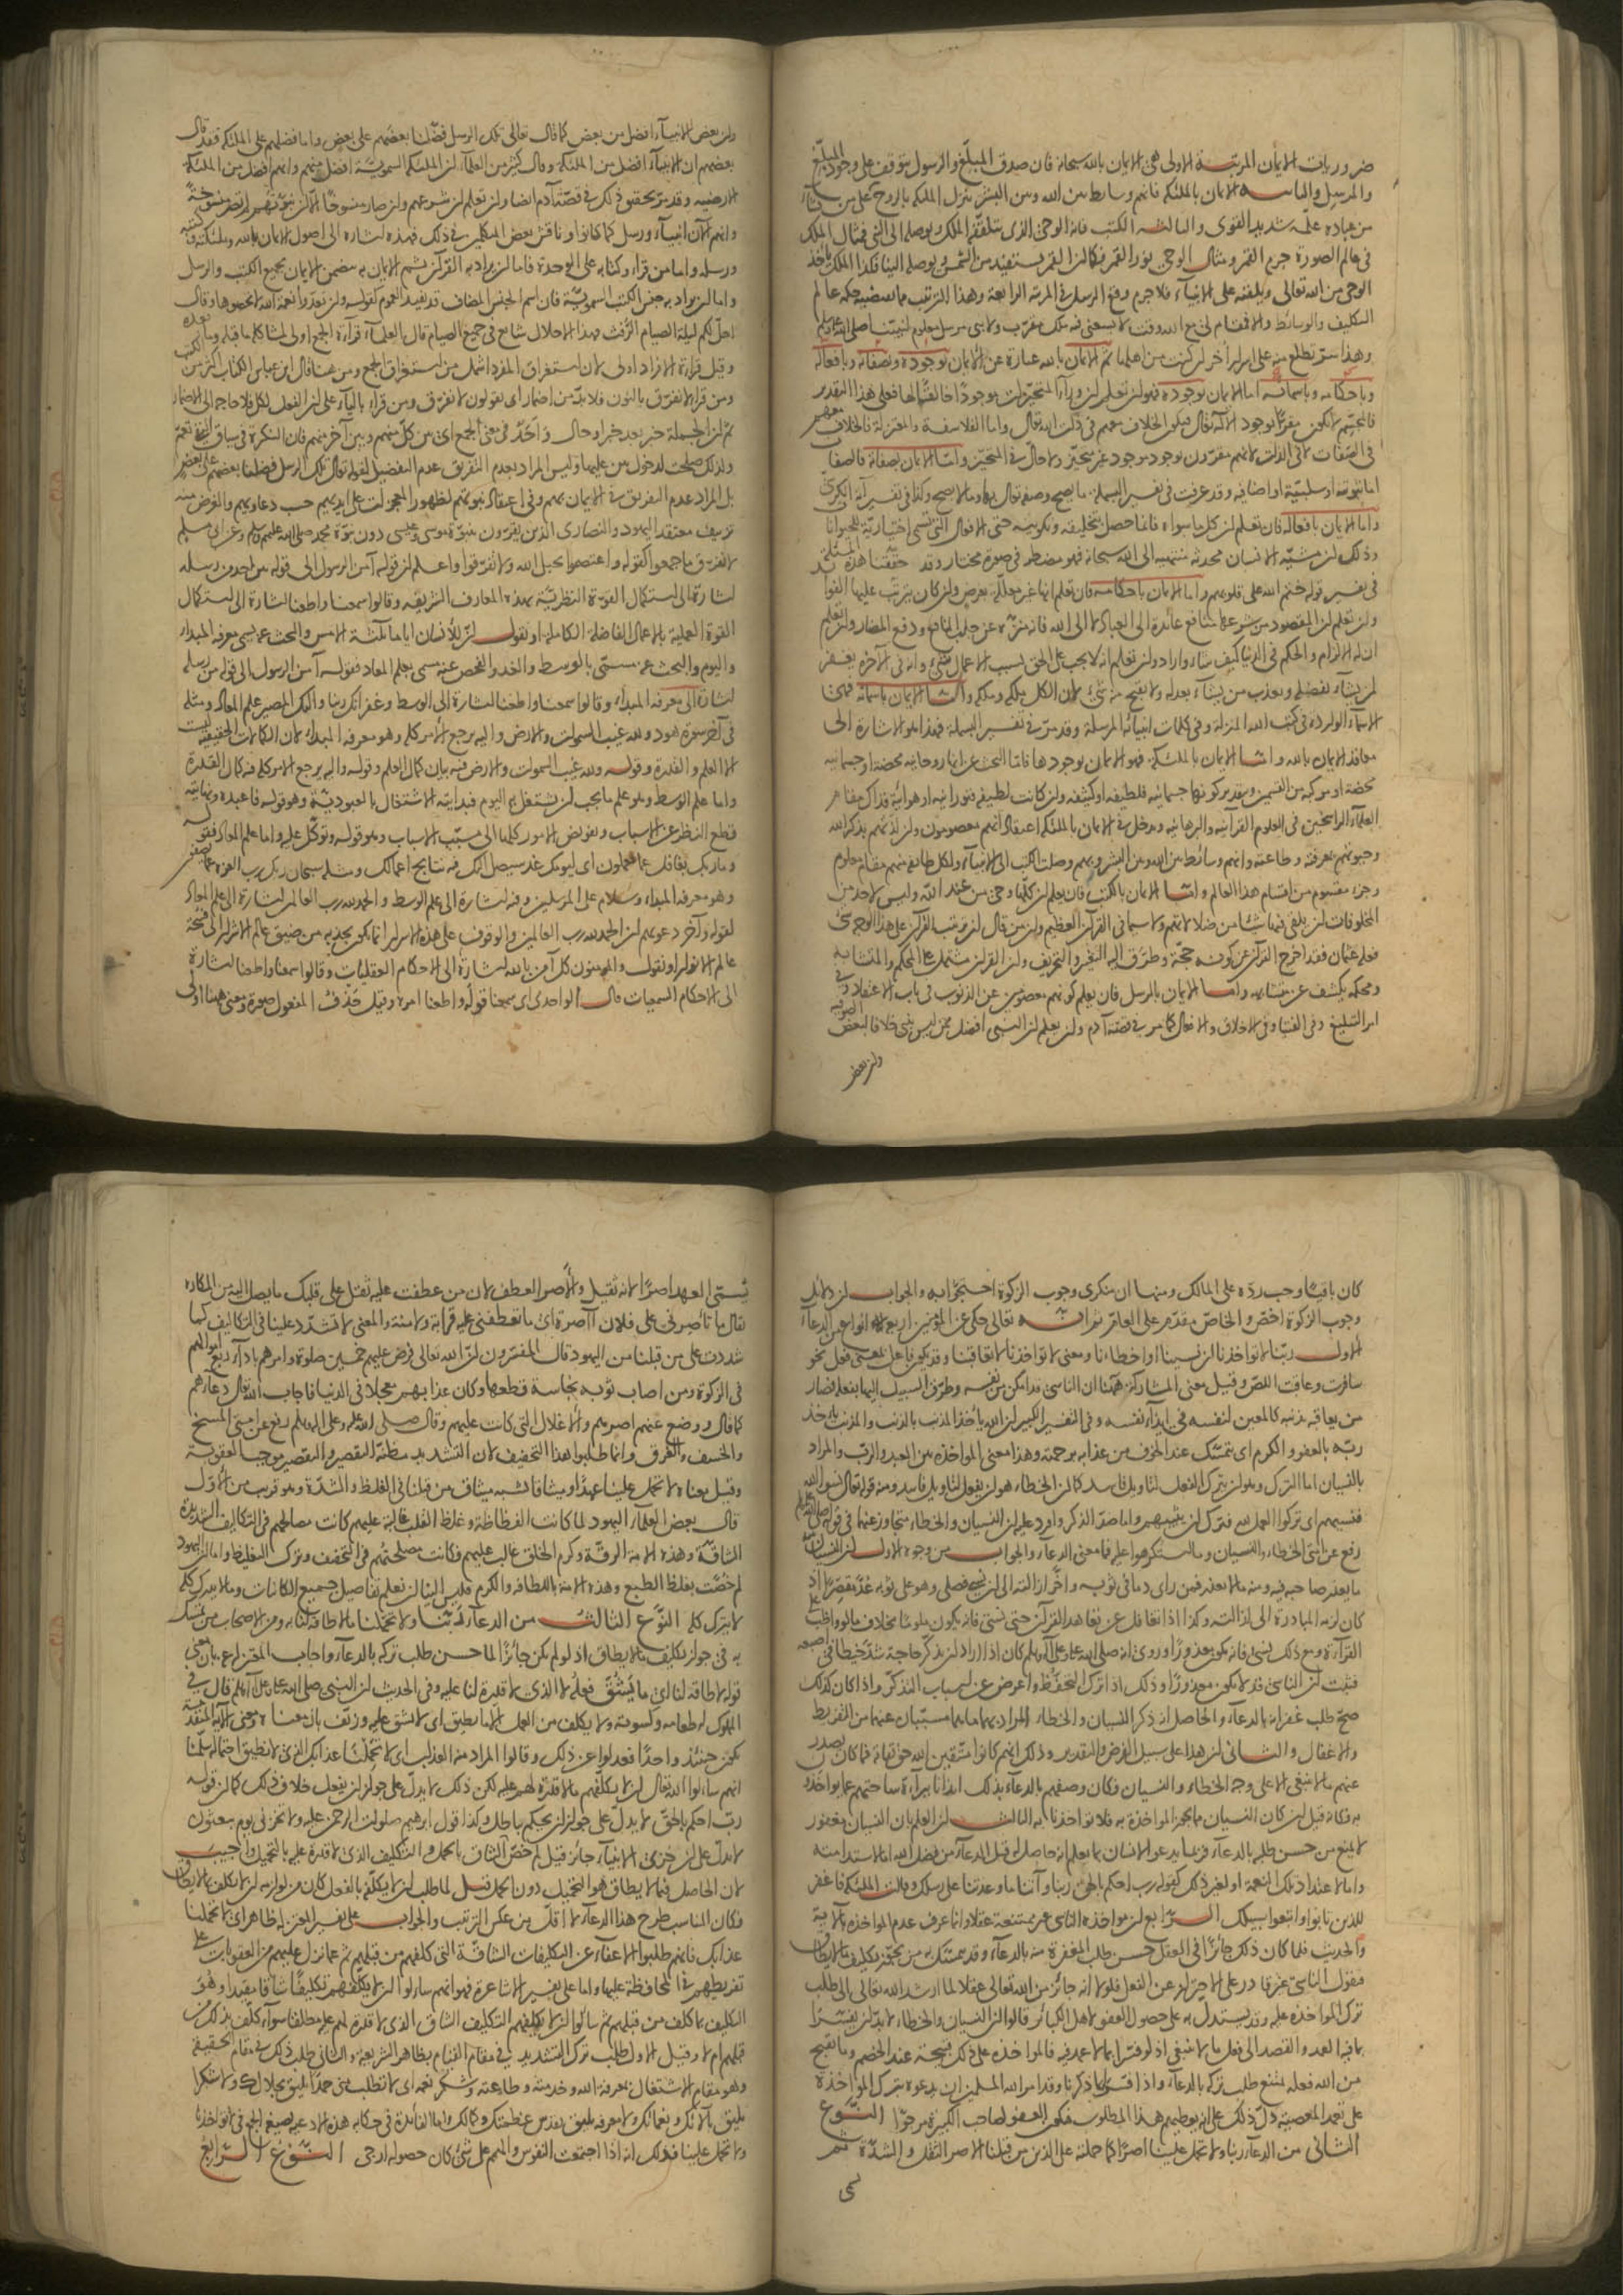 ضروريات الايمان المرتبة الاولى هى الايمان بالله سبحانه فان صدق المبلّغ والرسول يتوقف على وجود المبلّغ
والمرسل والثانيه الايمان بالملئكه فانهم وسايط بين الله وبين البشر ينزل الملئكه بالروح على من يشآء
من عباده علّمه شديد القوى والثالثه الكتب فانه الوحى الذى يتلقّفه الملك ويوصله الى النبى فمثال الملك
فى عالم الصورة جرم القمر ومثال الوحى نور القمر فكما ان القمر يستفيد من الشمس ويوصله الينا فكذا الملك ياخذ
الوحى من الله تعالى ويلقنه على الانبيآء فلا جرم وقع الرسل فى المرتبه الرابعة وهذا الترتيب مما يقتضيه حكمه عالم
التكليف والوسائط والا فمقام لى مع الله وقت لا يسعنى فيه ملك مقرّب ولا نبى مرسل معلوم لنبيّنا صلى الله عليه وسلم
وهذا سرّ تطلع منه على اسرار أخر ان كنت من اهلها ثمّ الايمان بالله عبارة عن الايمان بوجوده وبصفاته وبافعاله
وباحكامه وباسمائه اما الايمان بوجوده فهو ان تعلم ان ورآء المتحيزات موجودًا خالقًا لها فعلى هذا التقدير
فالمجسّم لا يكون مقرًّا بوجود الاله تعالى فيكون الخلاف معهم فى ذات الله تعالى واما الفلاسفة والمعتزلة فالخلاف معهم
فى الصفات لا فى الذات لانهم مقرون بوجود موجود غير متحيّز ولا حالّ فى المتحيّز وامّا الايمان بصفاته فالصفات
اما ثبوتيه او سلبيّة او اضافيه وقد عرفت فى تفسير البسمله ما يصح وصفه تعالى بها وما لا يصح وكذا فى تفسير آية الكرسى
وأما الايمان بافعاله فان تعلم ان كل ما سواه فانما حصل بتخليقه وتكوينه حتى الافعال التى تسمى اختياريّة للحيوانات
وذلك لان مشيّه الانسان محدثه منتهيه الى الله سبحانه فهو مضطر فى صورة مختار وقد حقّقنا هذه المسئله
فى تفسير قوله ختم الله على قلوبهم واما الايمان باحكامه فان تعلم انها غير معلّلة بغرض وان كان يترتب عليها الفوائد
وان تعلم ان المقصود من شرعها منافع عائدة الى العباد لا الى الله فانه منزّه عن جلب المنافع ودفع المضار وان تعلم
ان له الالزام والحكم فى الدنيا كيف شآء واراد وان تعلم انه لا يجب على الحق بسبب الاعمال شئ وانه فى الآخرة يغفر
لمن يشآء بفضله ويعذب من يشآء بعدله ولا يقبح منه شئ لان الكل ملكه وملكه وامّا الايمان باسمائه فهى
الاسمآء الواردة فى كتب الله المنزله وفى كلمات انبيائه المرسلة وقد مرّ فى تفسير البسملة فهذا هو الاشارة الى
معاقد الايمان بالله وامّا الايمان بالملئكه فهو الايمان بوجودها فاما البحث عن انها روحانيه محضة او جسمانيه
محضة او مركبه من القسمين وبتقدير كونها جسمانيه فلطيفه او كثيفه وان كانت لطيفه فنورانيه او هوائيّة فذاك مقام
العلمآء الراسخين فى العلوم القرآنيه والبرهانيه ويدخل فى الايمان بالملئكه اعتقاد انهم معصومون وان لذتهم بذكر الله
وحيوتهم بمعرفته وطاعته وانهم وسائط بين الله وبين البشر وبهم وصلت الكتب الى الانبيآء ولكل طائفه منهم مقام معلوم
وجزء مقسوم من اقسام هذا العالم وامّا الايمان بالكتب فان يعلم ان كلها وحى من عند الله وليس لاحد من
المخلوقات ان يلقى فيها شيئا من ضلالاتهم ولا سيما فى القرآن العظيم وان من قال ان ترتيب القرآن على هذا الوجه شئ
فعله عثمان فقد اخرج القرآن عن كونه حجّة وطرّق اليه التغيير والتحريف وان القرآن مشتمل على المحكم والمتشابه
ومحكمه يكشف عن متشابهه وامّا الايمان بالرسل فان يعلم كونهم معصومين عن الذنوب فى باب الاعتقاد وفى
امر التبليغ وفى الفتيا وفى الاخلاق والافعال كما مر فى قصّة آدم وان يعلم ان النبى افضل ممن ليس بنبى خلافا لبعض الصوفيه
وان بعض
وان بعض الانبيآء افضل من بعض كما قال تعالى تلك الرسل فضّلنا بعضهم على بعض واما فضلهم على الملئكه فقد قال
بعضهم ان الانبيآء افضل من الملئكه وقال كثير من العلمآء ان الملئكه السمويّة افضل منهم وانهم افضل من الملئكه
الارضيه وقد مرّ تحقيق ذلك فى قصّة آدم ايضا وان تعلم ان شرعهم وان صار منسوخًا الا ان نبوّتهم لم تصر منسوخةً
وانهم الآن انبيآء ورسل كما كانوا وناقش بعض المتكلمين فى ذلك فهذه اشاره الى اصول الايمان بالله وملئكته وكتبه
ورسله واما من قراء وكتابه على الوحدة فاما ان يراد به القرآن ثم الايمان به متضمن الايمان بجميع الكتب والرسل
واما ان يراد به جنس الكتب السمويّة فان اسم الجنس المضاف قد يفيد العموم كقوله وان تعدّوا نعمة الله لا تحصوها وقال
احلّ لكم ليلة الصيام الرّفث وهذا الاحلال شائع فى جميع الصيام قال العلمآء قرآءة الجمع اولى لمشاكله ما قبله وما بعده
وقيل قراءة الافراد اولى لان استغراق المفرد اشمل من استغراق الجمع ومن هنا قال ابن عباس الكتاب اكثر من الكتب
ومن قراء لا نفرّق بالنون فلا بدّ من اضمار اى يقولون لا نفرّق ومن قراء باليآء على ان الفعل لكل فلا حاجه الى الاضمار
ثمّ ان الجمله خبر بعد خبر او حال وَاحَدٌ فى معنى الجمع اى بين كلّ منهم وبين آخر منهم فان النكرة فى سياق النفى تعمّ
ولذلك صلحت لدخول بين عليها وليس المراد بعدم التفريق عدم التفضيل لقوله تعالى تلك الرسل فضّلنا بعضهم على بعض
بل المراد عدم التفريق فى الايمان بهم وفى اعتقاد نبوّتهم لظهور المعجزات على ايديهم حسب دعاويهم والغرض منه
تزييف معتقد اليهود والنصارى الذين يقرّون بنبوّة موسى وعيسى دون نبوّة محمد صلى الله عليهم وسلم
لا نفرّق ما جمعوا كقوله واعتصموا بحبل الله ولا تفرّقوا واعلم ان قوله آمن الرسول الى قوله بين احد من رسله
اشارة الى استكمال القوة النظريّة بهذه المعارف الشريفه وقالوا سمعنا واطعنا اشارة الى استكمال
القوة العملية بالاعمال الفاضلة الكاملة او نقول ان للانسان اياما ثلثة الامس والبحث عنه يسمى معرفة المبداء
واليوم والبحث عنه يسمّى بالوسط والغد والفحص عنه يسمى بعلم المعاد فقوله آمن الرسول الى قوله من رسله
اشارة الى معرفه المبداء وقالوا سمعنا واطعنا اشارة الى الوسط وغفرانك ربنا واليك المصير علم المعاد ومثله
فى آخر سورة هود ولله غيب السموات والارض واليه يرجع الامر كله وهو معرفه المبداء لان الكمالات الحقيقيه ليست
الا العلم والقدرة وقوله ولله غيب السموات والارض فيه بيان كمال العلم وقوله واليه يرجع الامر كله فيه كمال القدرة
واما علم الوسط وهو علم ما يجب ان يشتغل به اليوم فبدايته الاشتغال بالعبوديّة وهو قوله فاعبده ونهايته
قطع النظر عن الاسباب وتفويض الامور كلها الى مسبّب الاسباب وهو قوله وتوكّل عليه واما علم المعاد فقوله
وما ربك بغافل عما تعملون اى ليومك غد سيصل اليك فيه نتايج اعمالك ومثله سبحان ربك رب العزه عمّا يصفون
وهو معرفه المبداء وسلام على المرسلين وفيه اشارة الى علم الوسط والحمد لله رب العالمين اشارة الى علم المعاد
لقوله وآخر دعويهم ان الحمد لله رب العالمين والوقوف على هذه الاسرار انما يكون بجذبه من ضيق عالم الاشرار الى فسحة
عالم الانوار او نقول والمؤمنون كل آمن بالله اشارة الى الاحكام العقليات وقالوا سمعنا واطعنا اشارة
الى الاحكام السمعيات قال الواحدى اى سمعنا قوله واطعنا امره وقيل حَذْفُ المفعول صورة ومعنى ههنا اولى
كان باقيًا وجب ردّه على المالك ومنها ان منكرى وجوب الزكوة احتجّوا به والجواب ان دلائل
وجوب الزكوة اخصّ والخاصّ مقدّم على العامّ ثم انه تعالى حكى عن المؤمنين اربعه انواع من الدعآء
الاول ربّنا لا تواخذنا ان نسينا او اخطأنا ومعنى لا تواخذنا لا تعاقبنا وقد يكون فاعل بمعنى فعل نحو
سافرت وعاقبت اللص وقيل معنى المشاركة ههنا ان الناسى قد امكن من نفسه وطرّق السبيل اليها بفعله فصار
من يعاقبه بذنبه كالمعين لنفسه فى ايذآء نفسه وفى التفسير الكبير ان الله يأخذ المذنب بالذنب والمذنب يأخذ
ربّه بالعفو والكرم اى يتمسّك عند الخوف من عذابه برحمته وهذا معنى المواخذة بين العبد والربّ والمراد
بالنسيان اما الترك وهو ان يترك الفعل لتاويل فاسد كما ان الخطاء هو ان يفعل لتاويل فاسد ومنه قوله تعالى نسوا الله
فنسيهم اى تركوا العمل لله فترك ان يثيبهم واما ضدّ الذكر واورد عليه ان النسيان والخطاء متجاوز عنهما فى قوله صلى الله عليه وسلم
رفع عن امّتى الخطاء والنسيان وما استكرهوا عليه فما معنى الدعآء والجواب من وجوه الاول ان النسيان منه
ما يعذر صاحبه فيه ومنه ما لا يعذر فمن رأى دما فى ثوبه واخّر ازالته الى ان نسى فصلى وهو على ثوبه عُدَّ مقصّرًا اذ
كان لزمه المبادرة الى ازالته وكذا اذا تغافل عن تعاهد القرآن حتى نسى فانه يكون ملومًا بخلاف ما لو واظب على
القرآءة ومع ذلك نسى فانه يكون معذورًا وروى انه صلى الله عليه وعلى آله وسلم كان اذا اراد ان يذكر حاجة شدّ خيطا فى اصبعه
فثبت ان الناسى قد لا يكون معذورًا وذلك اذا ترك التحفّظ واعرض عن اسباب التذكر واذا كان كذلك
صحّ طلب غفرانه بالدعآء والحاصل انه ذكر النسيان والخطاء والمراد بهما ما هما مسبّبان عنهما من التفريط
والاغفال والثانى ان هذا على سبيل الفرض والتقدير وذلك انهم كانوا متّقين لله حقّ تقاته فما كان يصدر
عنهم ما لا ينبغى الا على وجه الخطاء والنسيان فكان وصفهم بالدعآء بذلك ايذانا ببرآءة ساحتهم عمّا يواخذون
به فكانه قيل ان كان النسيان مما يجوز المواخذة به فلا تواخذنا به الثالث ان العلم بان النسيان مغفور
لا يمنع من حسن طلبه بالدعآء فربّما يدعو الانسان بما يعلم انه حاصل له قبل الدعآء من فضل الله اما لاستدامته
واما لاعتداد تلك النعمة او لغير ذلك كقوله رب احكم بالحق ربنا وآتنا ما وعدتنا على رسلك وقالت الملئكة فاغفر
للذين تابوا واتبعوا سبيلك الرّابع ان مواخذة الناسى غير ممتنعة عقلا وانما عرف عدم المواخذه بالايه
والحديث فلما كان ذلك جائزًا فى العقل حسن طلب المغفرة منه بالدعآء وقد يتمسّك به من يجوّز تكليف ما لا يطاق
فيقول الناسى غير قادر على الاحتراز عن الفعل فلولا انه جائز من الله تعالى عقلا لما ارشد الله تعالى الى طلب
ترك المواخذه عليه وقد يستدل به على حصول العفو لاهل الكبائر قالوا ان النسيان والخطاء لا بدّ ان يفسّرا
بما فيه العمد والقصد الى فعل ما لا ينبغى اذ لو فسّرا بما لا عمد فيه فالمواخذه على ذلك قبيحة عند الخصم وما يقبح
من الله فعله يمتنع طلب تركه بالدعآء واذا فسّرا بما ذكرنا وقد امر الله المسلمين ان يدعوه بترك المواخذة
على تعمّد المعصيّة دلّ ذلك على انه يعطيهم هذا المطلوب فيكون العفو لصاحب الكبيره مرجوّا النّوع
الثانى من الدعآء ربنا ولا تحمل علينا اصرًا كما حملته على الذين من قبلنا الاصر الثقل والشدّة ثم
سمى
يُسمّى العهد اصرًا لانه ثقيل والأصر العطف لان من عطفت عليه ثقل على قلبك ما يصل اليه من المكاره
يقال ما تأصرنى على فلان آصرة اى ما تعطفنى عليه قرابة ولا منّة والمعنى لا تشدّد علينا فى التكاليف كما
شددت على من قبلنا من اليهود قال المفسّرون ان الله تعالى فرض عليهم خمسين صلوة وامرهم بادآء ربع اموالهم
فى الزكوة ومن اصاب ثوبه نجاسة قطعها وكان عذابهم معجلا فى الدنيا فاجاب الله تعالى دعآءهم
كما قال ويضع عنهم اصرهم والاغلال التى كانت عليهم وقال صلى الله عليه وعلى آله وسلم رفع عن امّتى المسخ
والخسف والغرق وانما طلبوا هذا التخفيف لان التشديد مظنّة التقصير والتقصير موجب العقوبة
وقيل معناه لا تحمل علينا عهدًا وميثاقا يشبه ميثاق من قبلنا فى الغلظ والشدّة وهو قريب من الاوّل
قال بعض العلمآء اليهود لما كانت الفظاظة وغلظ القلب غالبة عليهم كانت مصالحهم فى التكاليف الشديدة
الشاقّة وهذه الامة الرقّة وكرم الخلق غالب عليهم فكانت مصلحتهم فى التخفيف وترك التغليظ واما ان اليهود
لم خصّت بغلظ الطبع وهذه الامة باللطافه والكرم فليس الينا ان نعلم تفاصيل جميع الكائنات وما لا يدرك كله
لا يترك كله النّوع الثالث من الدعآء ربّنا ولا تحمّلنا ما لا طاقة لنا به ومن الاصحاب من تمسّك
به فى جواز تكليف ما لا يطاق اذ لو لم يكن جائزًا لما حسن طلب تركه بالدعآء واجاب المعتزلة عنه بان معنى
قوله لا طاقة لنا اى ما يَشُقُّ فعلُه لا الذى لا قدرة لنا عليه وفى الحديث ان النبى صلى الله عليه وعلى آله وسلم قال فى
المملوك له طعامه وكسوته ولا يكلف من العمل الا ما يطيق اى لا يشق عليه وزيّف بان معناه ومعنى الآية المتقدّمة
يكون حينئذ واحدًا فعدلوا عن ذلك وقالوا المراد منه العذاب اى لا تحمّلنا عذابك الذى لا نطيق احتماله سلّمنا
انهم سألوا الله تعالى ان لا يكلّفهم ما لا قدرة لهم عليه لكن ذلك لا يدلّ على جواز ان يفعل خلاف ذلك كما ان قوله
ربّ احكم بالحقّ لا يدلّ على جواز ان يحكم بباطل وكذا قول ابرهيم صلوات الرحمن عليه ولا تخزنى يوم يبعثون
لا يدلّ على ان خزى الانبيآء جائز قيل لم خصّ الشاق بالحمل والتكليف الذى لا قدرة عليه بالتحميل واجيب
بان الحاصل فيما لا يطاق هو التحميل دون الحمل قيل لما طلب ان لا يكلّفه بالفعل الشاق كان من لوازمه ان لا يكلفه ما لا يطاق
فكان المناسب طرح هذا الدعآء لا اقلّ من عكس الترتيب والجواب على تفسير المعتزلة ظاهر اى لا تحملنا
عذابك فانهم طلبوا الاعفآء عن التكليفات الشاقّة التى كلفهم من قبلهم ثم عما نزل عليهم من العقوبات على
تفريطهم فى المحافظة عليها واما على تفسير الاشاعرة فهو انهم سألوا ان لا يكلفهم تكليفًا شاقا مقيدا وهو
التكليف بما كلف من قبلهم ثم سألوا ان لا يكلفهم التكليف الشاق الذى لا قدرة لهم عليه مطلقا سوآء كلّف بذلك من
قبلهم ام لا وقيل الاول طلب ترك التشديد فى مقام القيام بظاهر الشريعة والثانى طلب ذلك فى مقام الحقيقة
وهو مقام الاشتغال بمعرفة الله وخدمته وطاعته وشكر نعمه اى لا تطلب منى حمدًا يليق بجلالك ولا شكرا
يليق بآلائك ونعمائك ولا معرفه تليق بقدس عظمتك وكمالك واما الفائدة فى حكايه هذه الادعيه بصيغه الجمع فى لا تواخذنا
ولا تحمل علينا فذلك انه اذا اجتمعت النفوس والهمم على شئ كان حصوله ارجى النّوع الرّابع